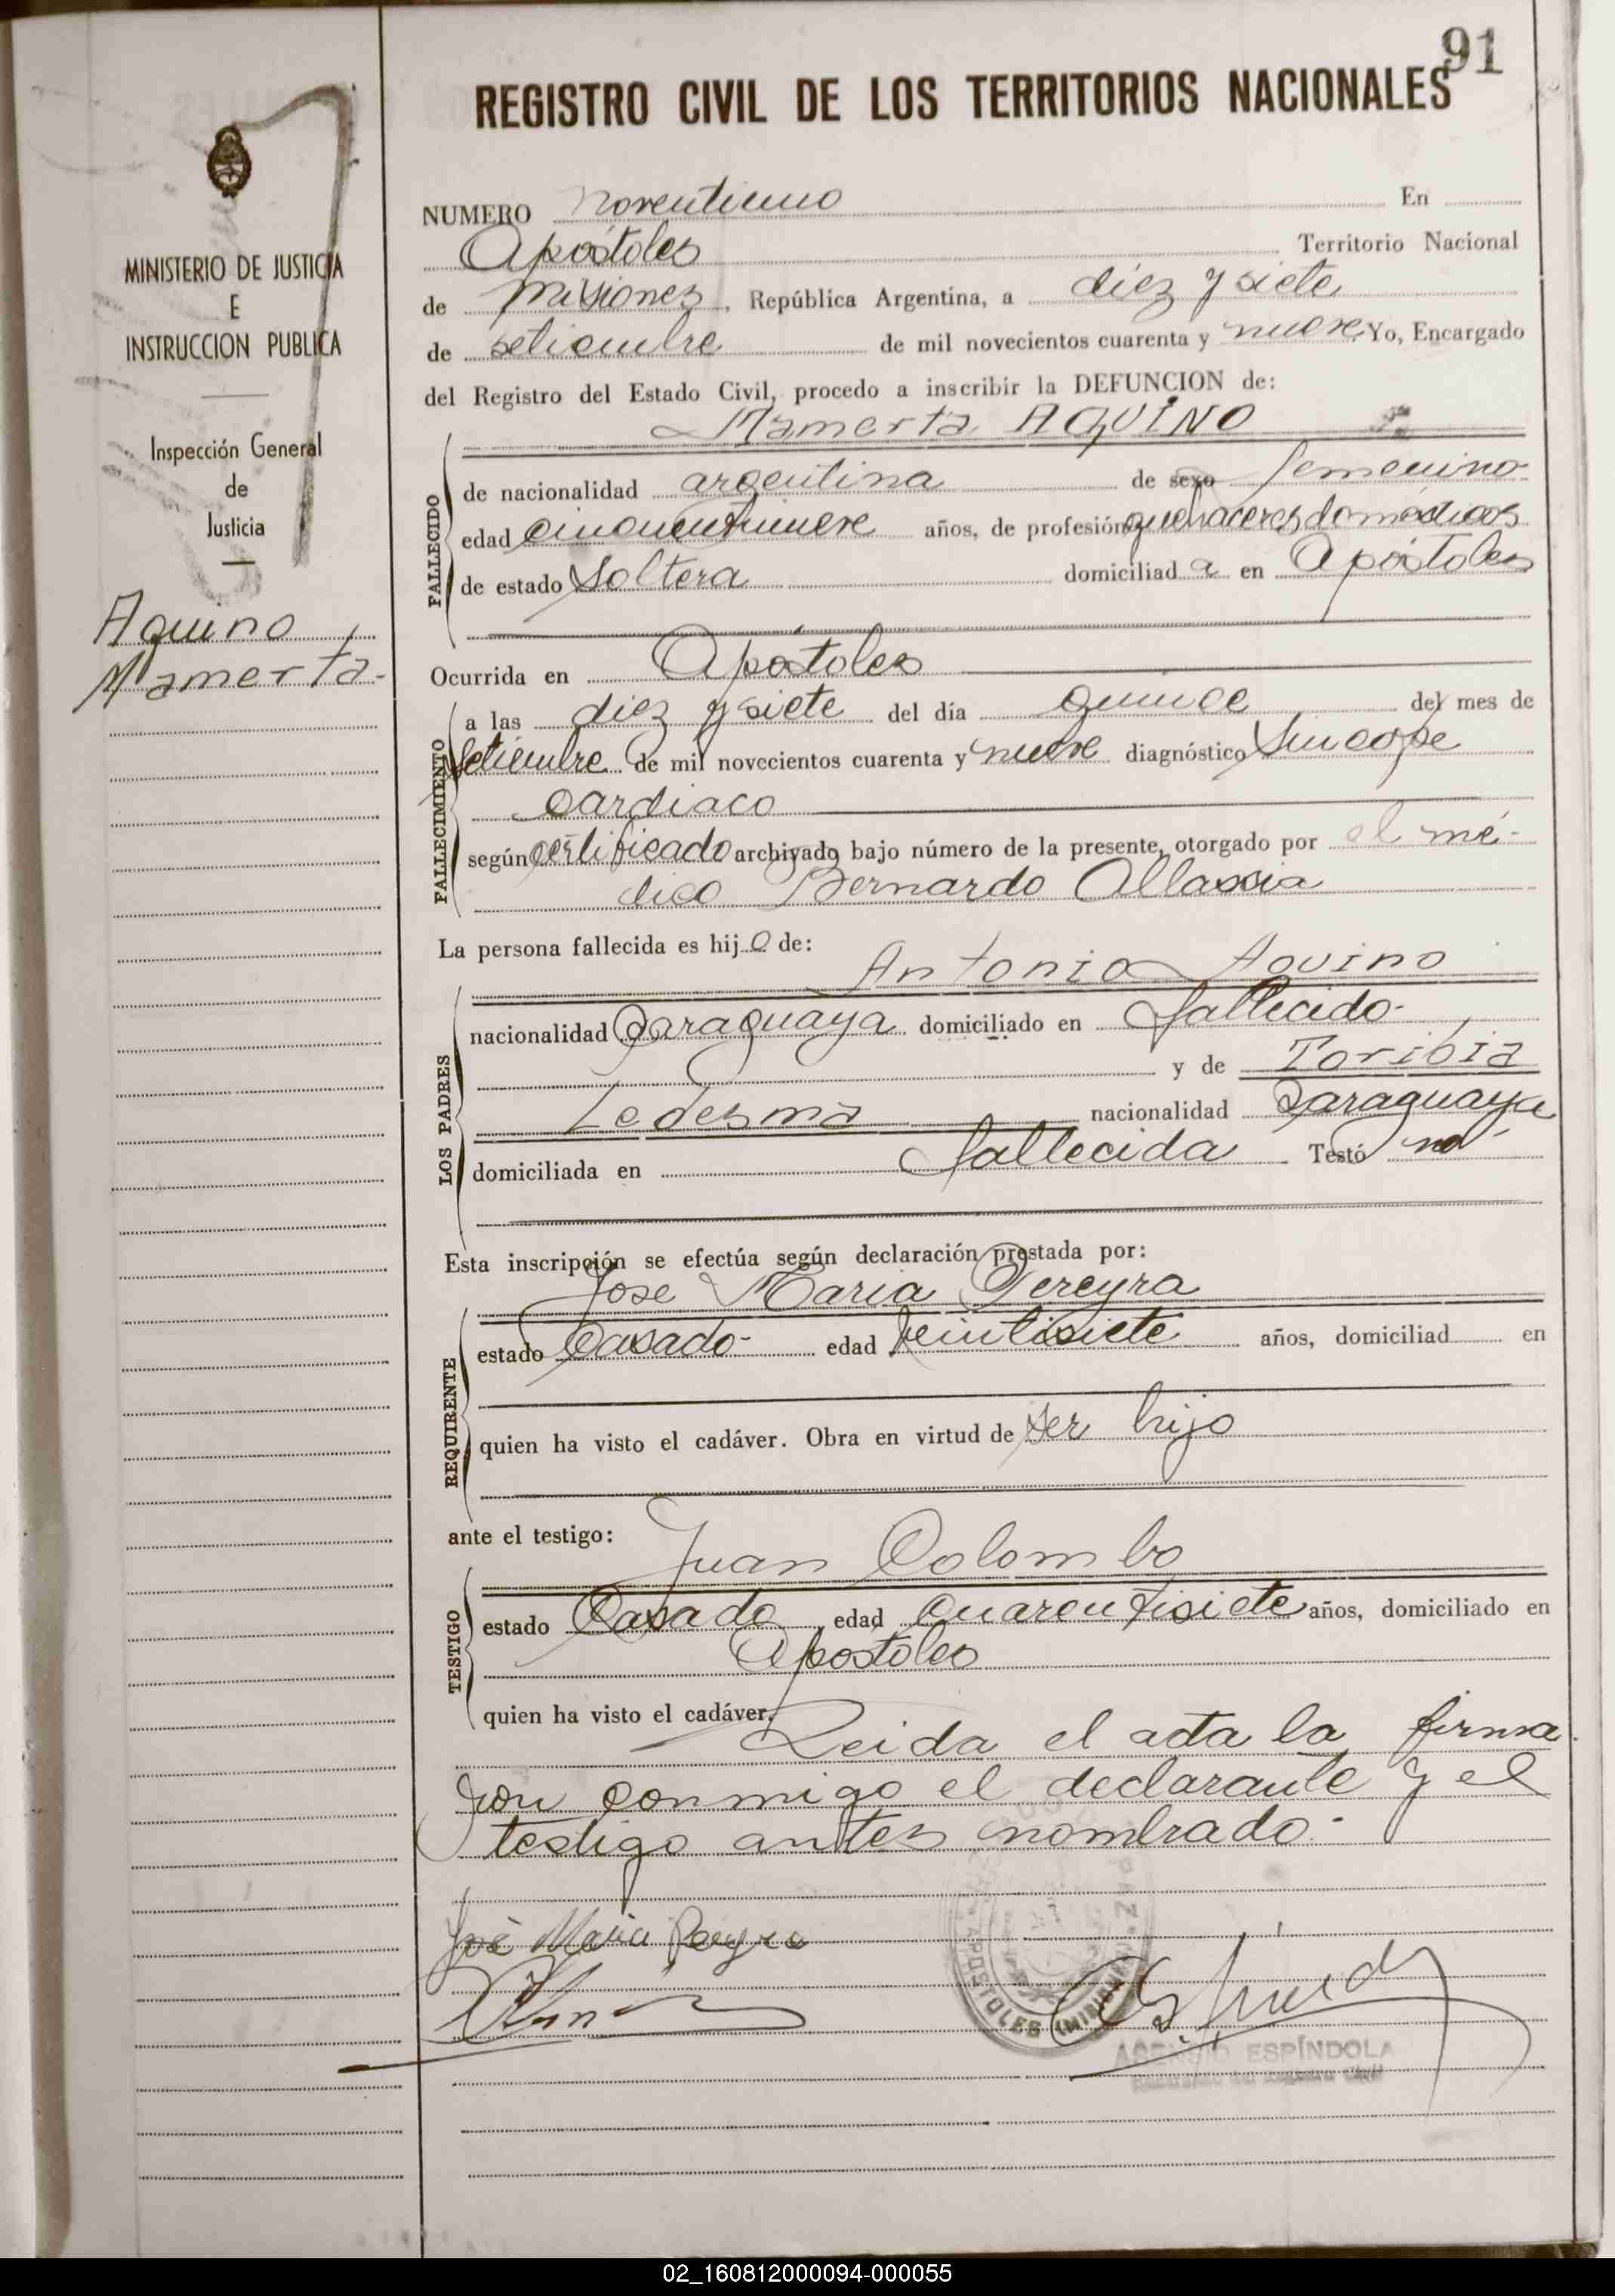 91
REGISTRO CIVIL DE LOS TERRITORIOS NACIONALES
MINISTERIO DE JUSTICIA
E
INSTRUCCION PUBLICA
Inspección General
de
Justicia
Aquino
Mamerta-
NUMERO noventiuno En
Apóstoles Territorio Nacional
de Misiones, República Argentina, a diez y siete
de setiembre de mil novecientos cuarenta y nueve Yo, Encargado
del Registro del Estado Civil, procedo a inscribir la DEFUNCION de:
Mamerta AQUINO
FALLECIDO
de nacionalidad argentina de sexo femenino
edad cincuentinueve años, de profesión quehaceres domésticos
de estado Soltera domiciliad a en Apóstoles
Ocurrida en Apóstoles
FALLECIMIENTO
a las diez y siete del día quince del mes de
setiembre de mil novecientos cuarenta y nueve diagnóstico Sincope
cardiaco
según certificado archivado bajo número de la presente, otorgado por el mé-
dico Bernardo Allassia
La persona fallecida es hij a de:
LOS PADRES
Antonio Aquino
nacionalidad Paraguaya domiciliado en fallecido-
y de Toribia
Ledesma nacionalidad Paraguaya
domiciliada en fallecida Testó no-
Esta inscripción se efectúa según declaración prestada por:
REQUIRENTE
Jose Maria Pereyra
estado Casado- edad veintisiete años, domiciliad en
quien ha visto el cadáver. Obra en virtud de ser hijo
ante el testigo:
TESTIGO
Juan Colombo
estado Casado, edad cuarentisiete años, domiciliado en
Apostoles
quien ha visto el cadáver.
Leida el acta la firma
ron conmigo el declarante y el
testigo antes nombrado-
José Maria Pereyra
APOSTOLES
ASENSIO ESPÍNDOLA
02_160812000094-000055